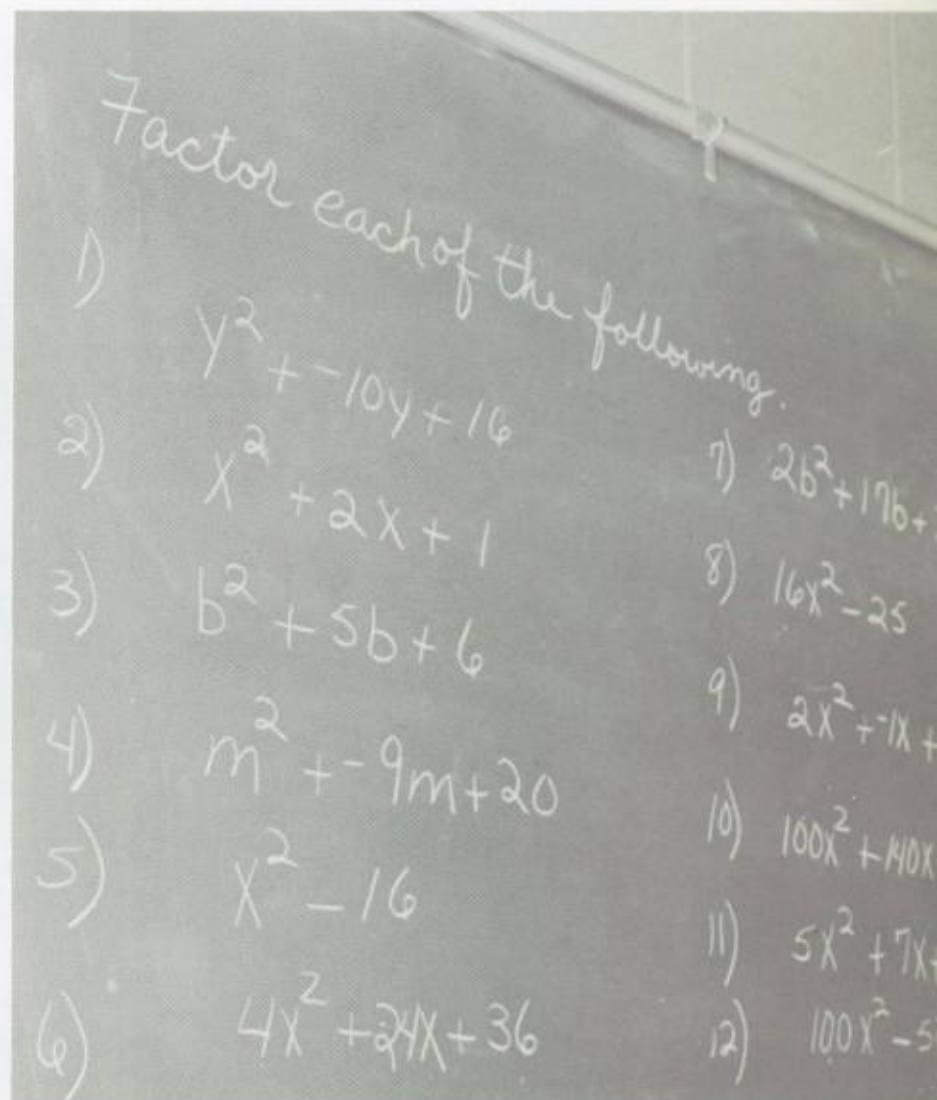 Factor each of the following.
1) y² + ⁻10y + 16
2) x² + 2x + 1
3) b² + 5b + 6
4) m² + ⁻9m + 20
5) x² - 16
6) 4x² + 24x + 36
7) 2b² + 17b +
8) 16x² - 25
9) 2x² + ⁻1x +
10) 100x² + 140x
11) 5x² + 7x +
12) 100x² - 5